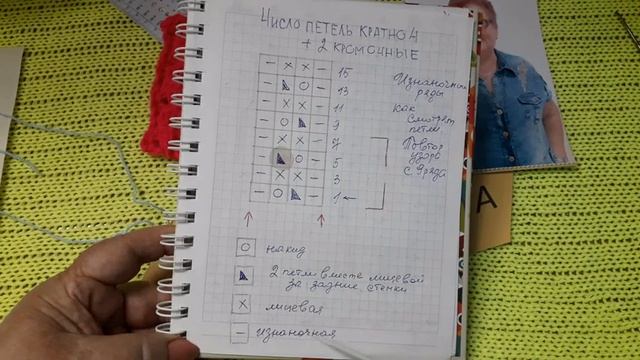 Число петель кратно 4
+ 2 кромочные
— × × — 15
— ◣ ○ — 13
— × × — 11
— ○ ◣ — 9
— × × — 7
— ◣ ○ — 5
— × × — 3
— ○ ◣ — 1 ←
Изнаночные
ряды
как
смотрят
петли
Повтор
узора
с 9 ряда
○ накид
◣ 2 петли вместе лицевой
за задние стенки
× лицевая
— изнаночная
А